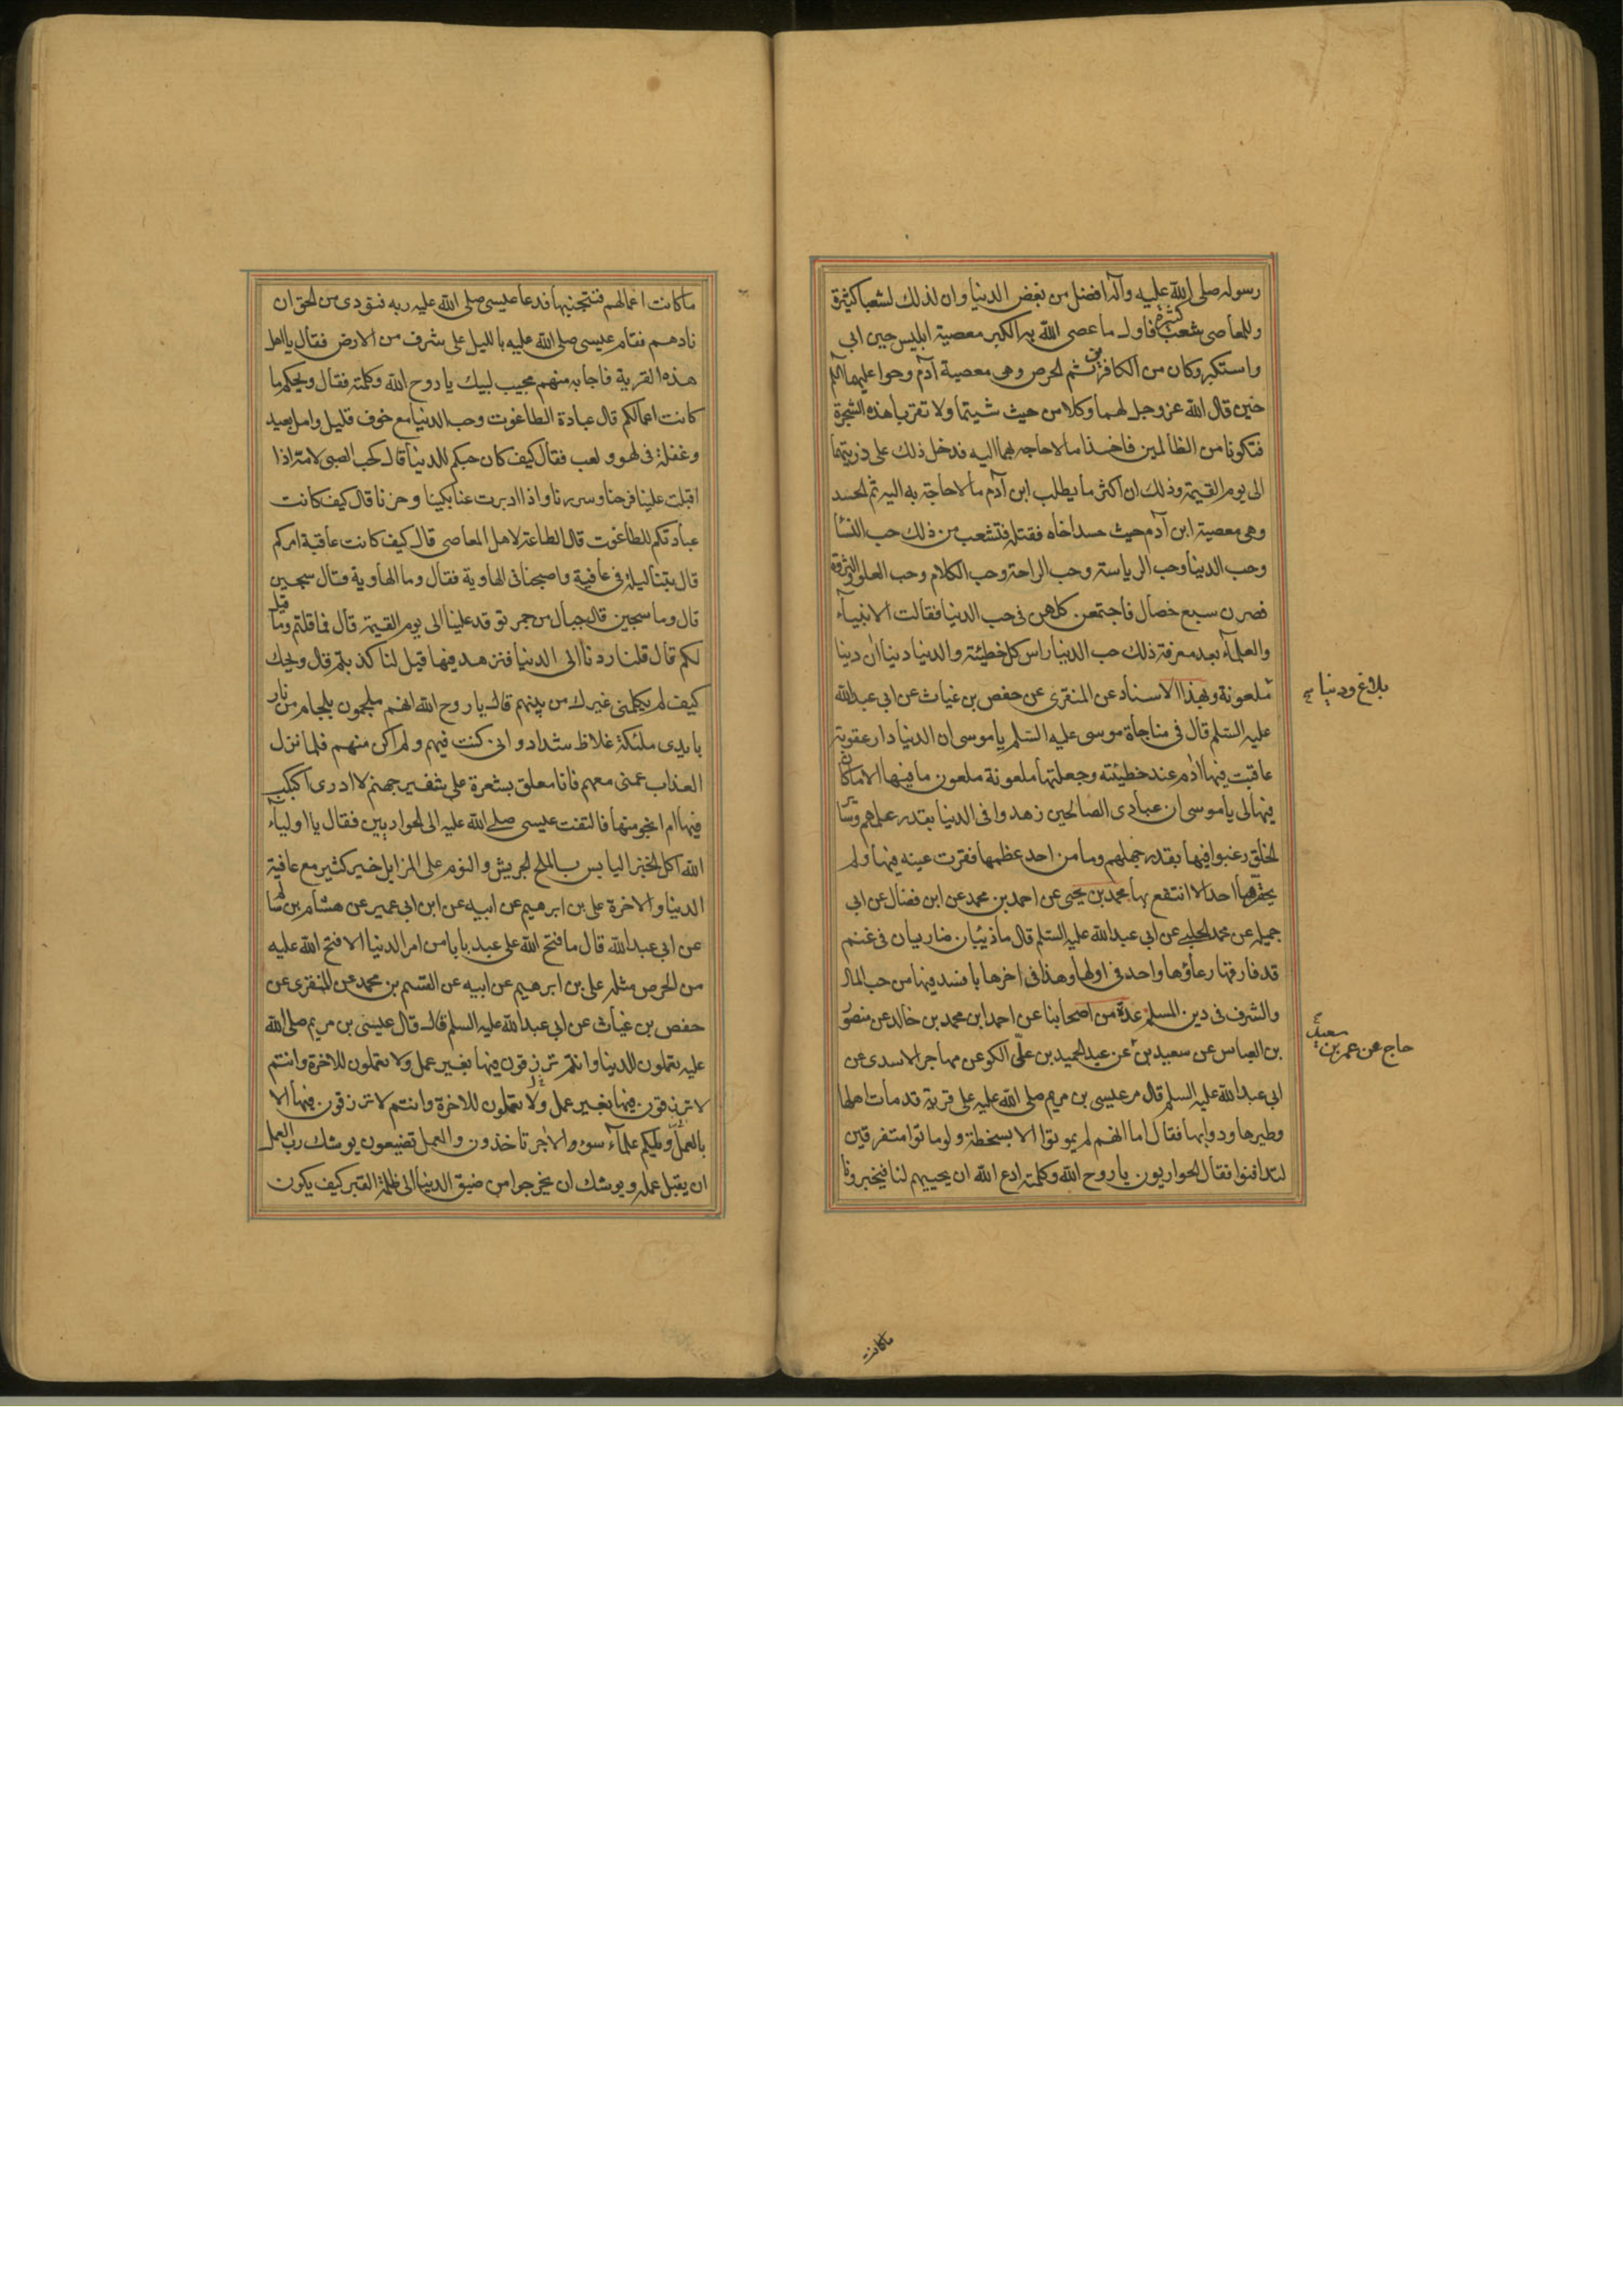 رسوله صلى الله عليه وآله افضل من بغض الدنيا وان لذلك لشعبا كثيرة
وللمعاصى شعب كثيرة فاول ما عصى الله به الكبر معصية ابليس حين ابى
واستكبر وكان من الكافرين ثم الحرص وهى معصية آدم وحوا عليهما السلم
حين قال الله عز وجل لهما وكلا من حيث شيتما ولا تقربا هذه الشجرة
فتكونا من الظالمين فاخذا ما لا حاجه بهما اليه فدخل ذلك على ذريتهما
الى يوم القيمة وذلك ان اكثر ما يطلب ابن آدم ما لا حاجة به اليه ثم الحسد
وهى معصية ابن آدم حيث حسد اخاه فقتله فتشعب من ذلك حب النسآ
وحب الدنيا وحب الرياسة وحب الراحة وحب الكلام وحب العلو والثروة
فصرن سبع خصال فاجتمعن كلهن فى حب الدنيا فقالت الانبيآء
والعلمآء بعد معرفة ذلك حب الدنيا راس كل خطيئة والدنيا دنيا ان دينا
ملعونة وبهذا الاسناد عن المنقرى عن حفص بن غياث عن ابى عبدالله
عليه السلم قال فى مناجاة موسى عليه السلم يا موسى ان الدنيا دار عقوبة
عاقبت فيها ادم عند خطيئته وجعلتها ملعونة ملعون ما فيها الا ما كان
فيها لى يا موسى ان عبادى الصالحين زهدوا فى الدنيا بقدر علمهم وسآير
الخلق رغبوا فيها بقدر جهلهم وما من احد عظمها فقرت عينه فيها ولم
يحقرها احد الا انتفع بها محمد بن يحيى عن احمد بن محمد عن ابن فضال عن ابى
جميله عن محمد الحلبى عن ابى عبدالله عليه السلم قال ما ذئبان ضاريان فى غنم
قد فارقها رعاؤها واحد فى اولها وهذا فى اخرها بافسد فيها من حب المال
والشرف فى دين المسلم عدة من اصحابنا عن احمد ابن محمد بن خالد عن منصور
بن العباس عن سعيد بن عن عبد الحميد بن على الكو عن مهاجر الاسدى عن
ابى عبدالله عليه السلم قال مر عيسى بن مريم صلى الله عليه على قرية قد مات اهلها
وطيرها ودوابها فقال اما انهم لم يموتوا الا بسخطة ولو ماتوا متفرقين
لتدافنوا فقال الحواريون يا روح الله وكلمته ادع الله ان يحييهم لنا فيخبرونا
بلاغ ودنيا
جاح عن عمر بن سعيد
ماكانت
ما كانت اعمالهم فنتجنبها فدعا عيسى صلى الله عليه ربه فنودى من الجو ان
نادهم فقام عيسى صلى الله عليه بالليل على شرف من الارض فقال يا اهل
هذه القرية فاجابه منهم مجيب لبيك يا روح الله وكلمته فقال ويحكم ما
كانت اعمالكم قال عبادة الطاغوت وحب الدنيا مع خوف قليل وامل بعيد
وغفلة فى لهو ولعب فقال كيف كان حبكم للدنيا قال كحب الصبى لامه اذا
اقبلت علينا فرحنا وسررنا واذا ادبرت عنا بكينا وحزنا قال كيف كانت
عبادتكم للطاغوت قال الطاعة لاهل المعاصى قال كيف كانت عاقبة امركم
قال بتنا ليلة فى عافية واصبحنا فى الهاوية فقال وما الهاوية فقال سجين
قال وما سجين قال جبال من جمر توقد علينا الى يوم القيمة قال فما قلتم وما قيل
لكم قال قلنا ردنا الى الدنيا فنزهد فيها قيل لنا كذبتم قال ويحك
كيف لم يكلمنى غيرك من بينهم قال يا روح الله انهم ملجمون بلجام من نار
بايدى ملئكة غلاظ شداد وانى كنت فيهم ولم اكن منهم فلما نزل
العذاب عمنى معهم فانا معلق بشعرة على شفير جهنم لا ادرى اكبكب
فيها ام انجو منها فالتفت عيسى صلى الله عليه الى الحواريين فقال يا اوليآء
الله اكل الخبز اليابس بالملح الجريش والنوم على المزابل خير كثير مع عافية
الدنيا والاخرة على بن ابرهيم عن ابيه عن ابن ابى عمير عن هشام بن سالم
عن ابى عبدالله قال ما فتح الله على عبد بابا من امر الدنيا الا فتح الله عليه
من الحرص مثله على بن ابرهيم عن ابيه عن القسم بن محمد عن المنقرى عن
حفص بن غياث عن ابى عبدالله عليه السلم قال قال عيسى بن مريم صلى الله
عليه تعملون للدنيا وانتم ترزقون فيها بغير عمل ولا تعملون للاخرة وانتم
لا ترزقون فيها بغير عمل ولا تعملون للاخرة وانتم لا ترزقون فيها الا
بالعمل ويلكم علمآء سوء الاجر تاخذون والعمل تضيعون يوشك رب العمل
ان يقبل عمله ويوشك ان يخرجوا من ضيق الدنيا الى ظلمة القبر كيف يكون